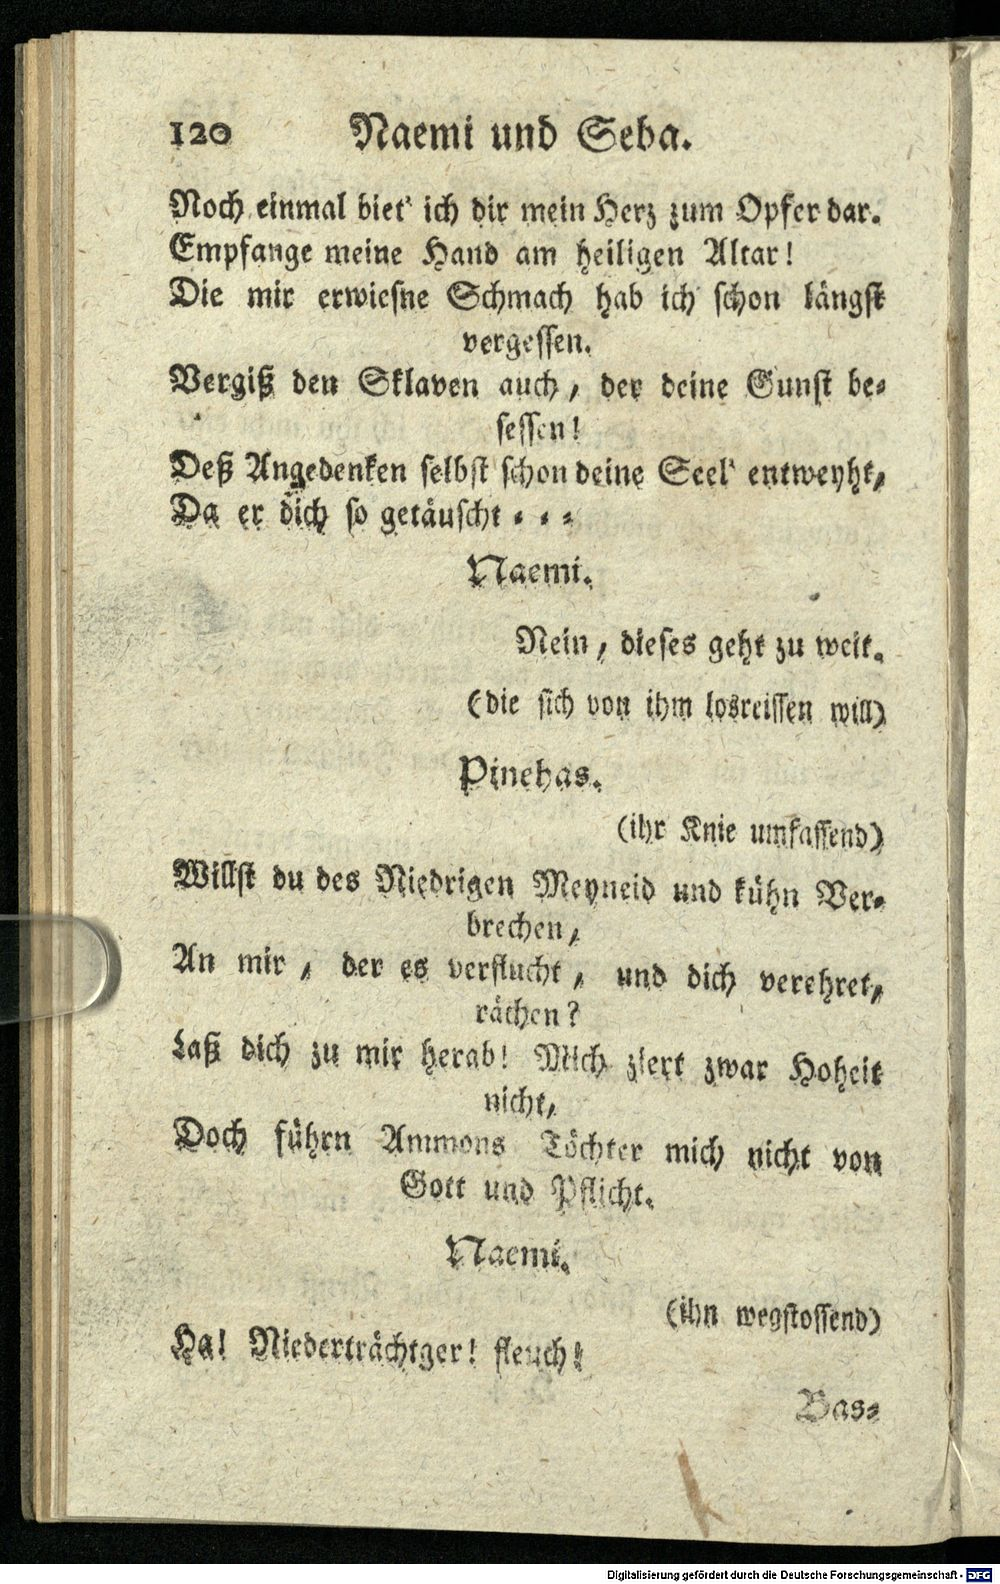 120 Naemi und Seba.
Noch einmal biet' ich dir mein Herz zum Opfer dar.
Empfange meine Hand am heiligen Altar!
Die mir erwiesne Schmach hab ich schon längst
vergessen.
Vergiß den Sklaven auch, der deine Gunst be-
sessen!
Deß Angedenken selbst schon deine Seel' entweyht,
Da er dich so getäuscht - - -
Naemi.
Nein, dieses geht zu weit.
(die sich von ihm losreissen will)
Pinehas.
(ihr Knie umfassend)
Willst du des Niedrigen Meyneid und kühn Ver-
brechen,
An mir, der es verflucht, und dich verehret,
rächen?
Laß dich zu mir herab! Mich ziert zwar Hoheit
nicht,
Doch führn Ammons Töchter mich nicht von
Gott und Pflicht.
Naemi.
(ihn wegstossend)
Ha! Niederträchtger! fleuch!
Bas-
Digitalisierung gefördert durch die Deutsche Forschungsgemeinschaft - DFG